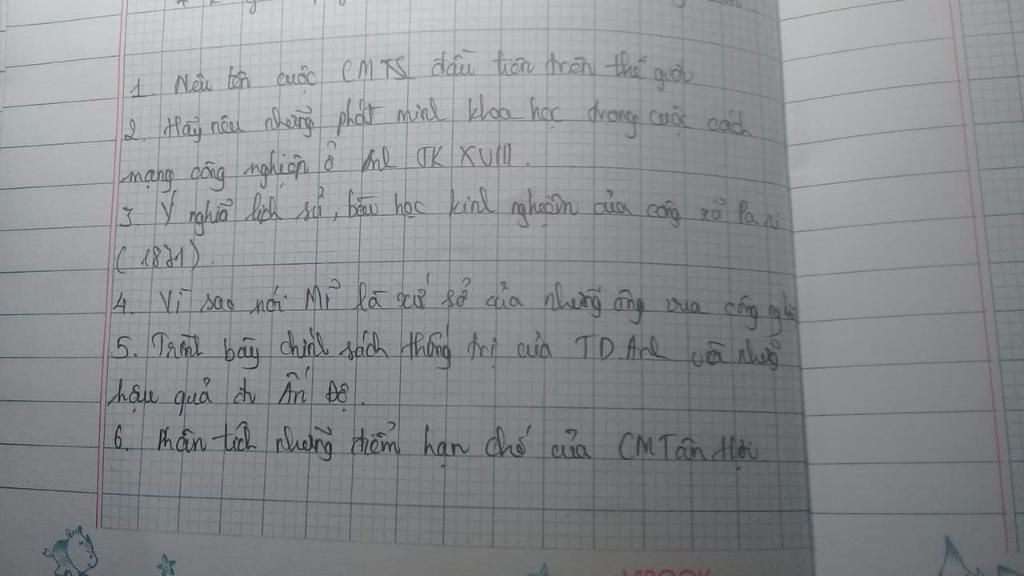 1. Nêu tên cuộc CMTS đầu tiên trên thế giới
2. Hãy nêu những phát minh khoa học trong cuộc cách
mạng công nghiệp ở Anh TK XVIII.
3. Ý nghĩa lịch sử, bài học kinh nghiệm của công xã Pa ri
(1871).
4. Vì sao nói Mĩ là xứ sở của những ông vua công ngh
5. Trình bày chính sách thống trị của TD Anh và những
hậu quả ở Ấn Độ.
6. Phân tích những điểm hạn chế của CM Tân Hợi